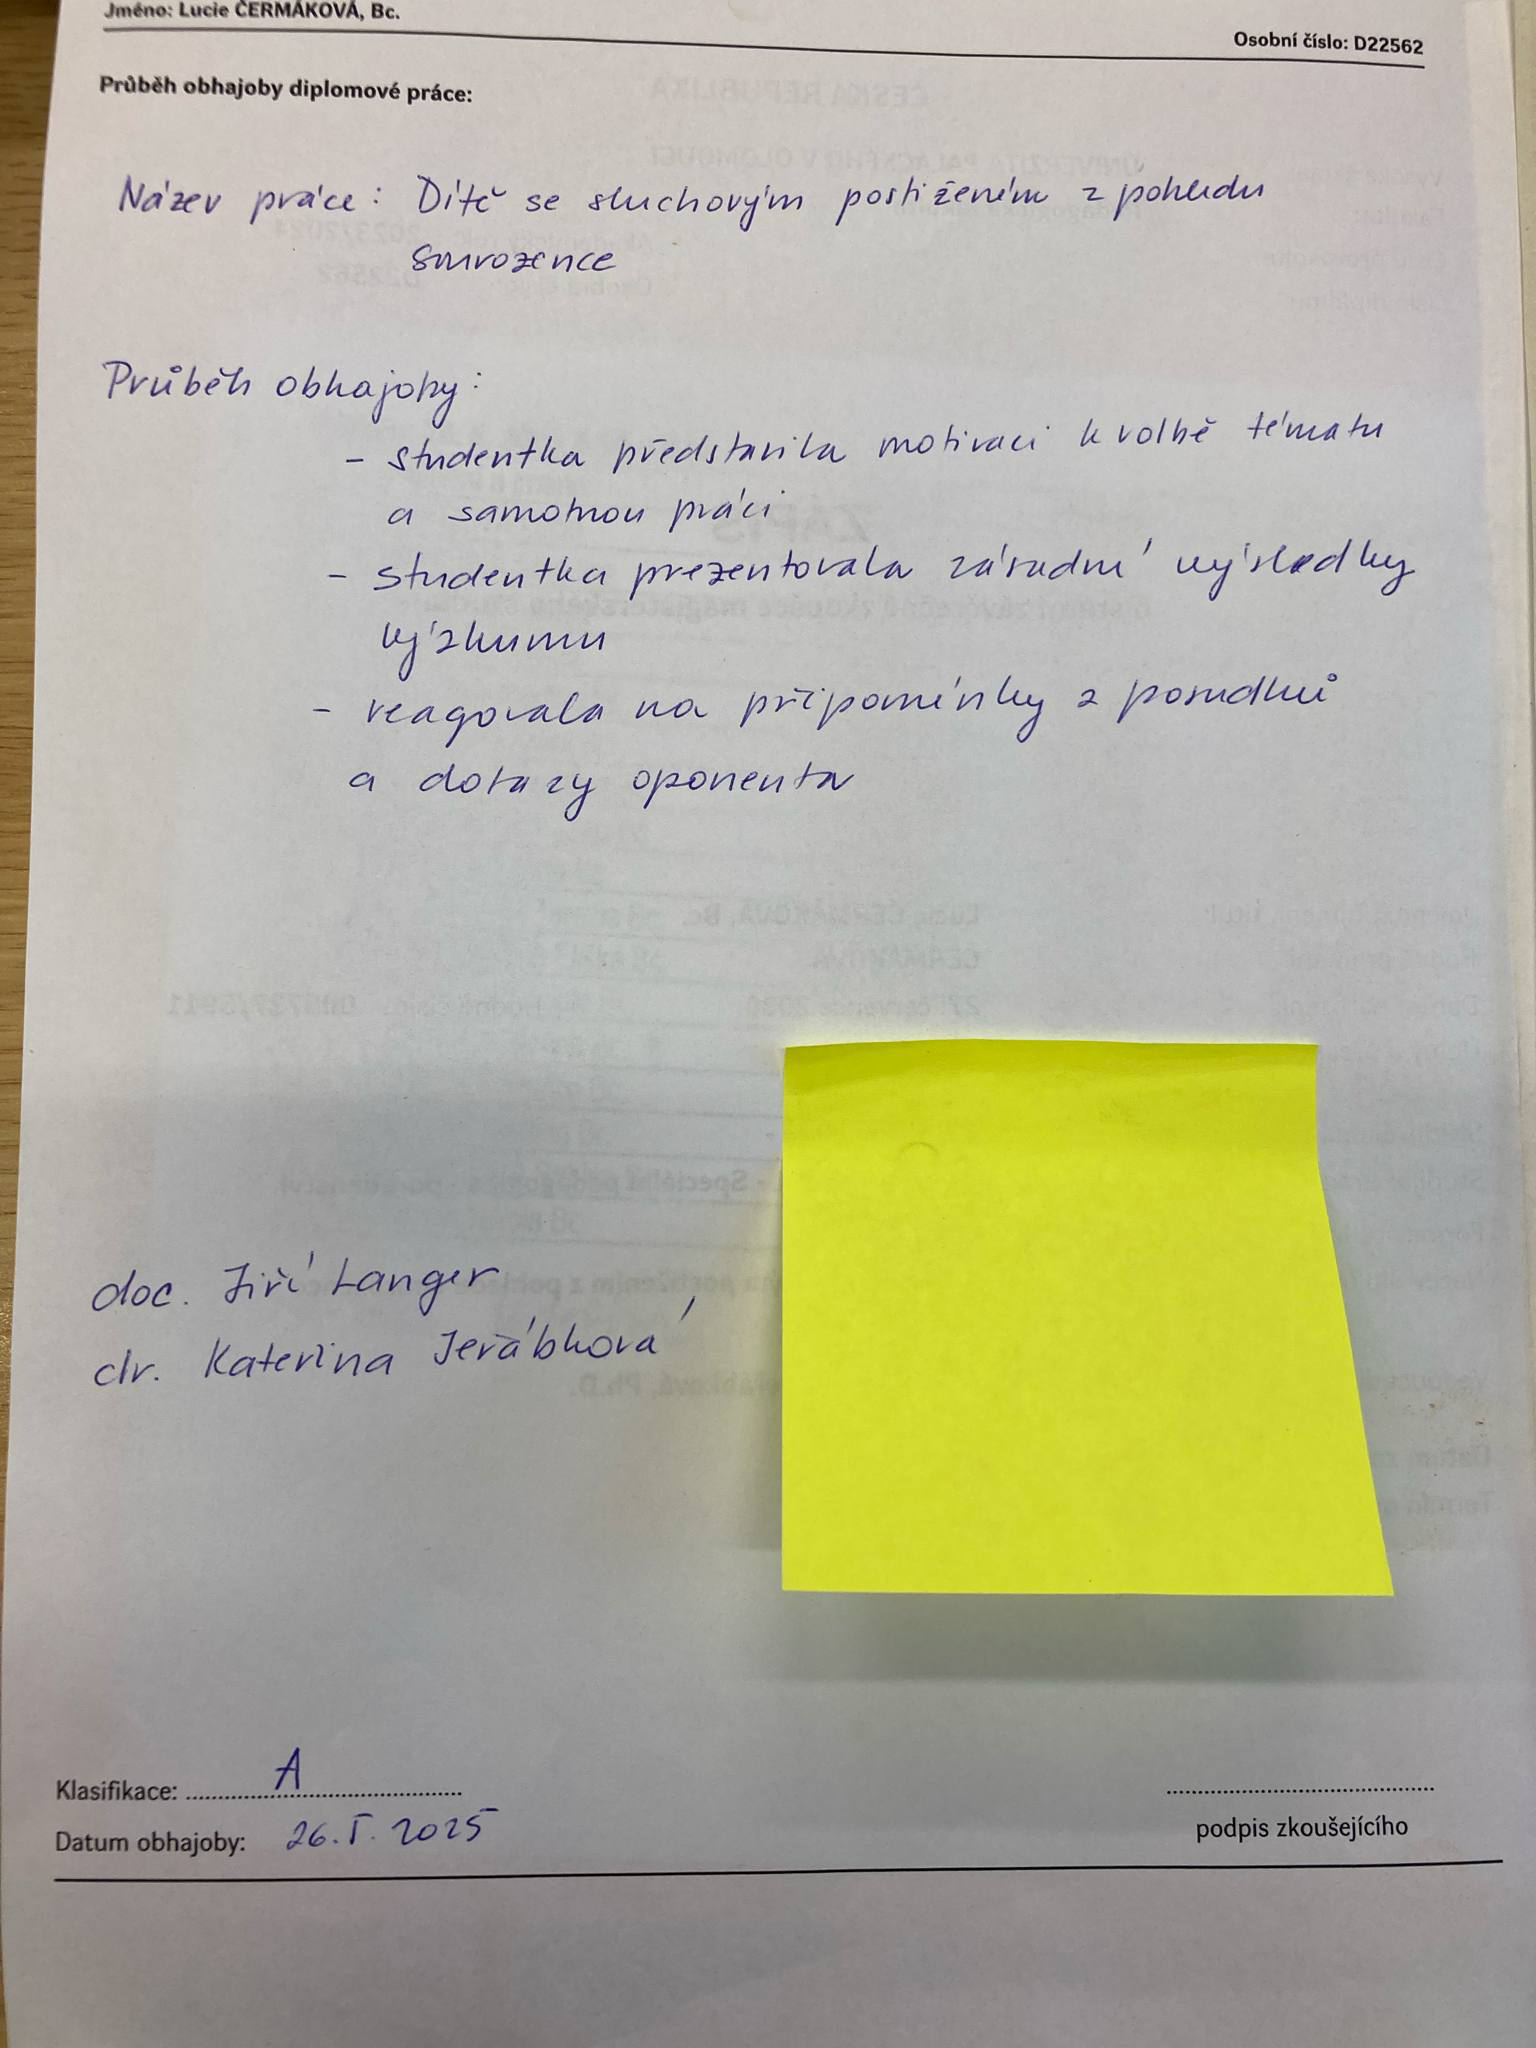 Jméno: Lucie ČERMÁKOVÁ, Bc.
Osobní číslo: D22562
Průběh obhajoby diplomové práce:
Název práce: Dítě se sluchovým postižením z pohledu
sourozence
Průběh obhajoby:
- studentka představila motivaci k volbě tématu
a samotnou práci
- studentka prezentovala zásadní výsledky
výzkumu
- reagovala na připomínky z posudků
a dotazy oponenta
doc. Jiří Langer
dr. Kateřina Jeřábková
Klasifikace: A
Datum obhajoby: 26.5.2025
podpis zkoušejícího